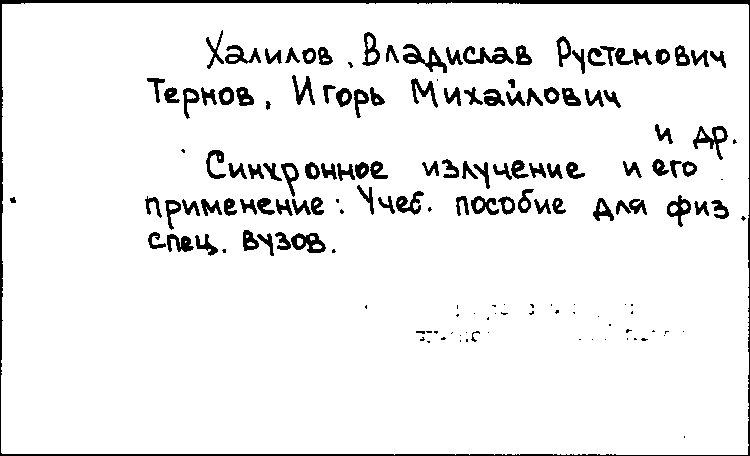 Халилов, Владислав Рустемович
Тернов, Игорь Михайлович
и др.
Синхронное излучение и его
применение: Учеб. пособие для физ.
спец. вузов.